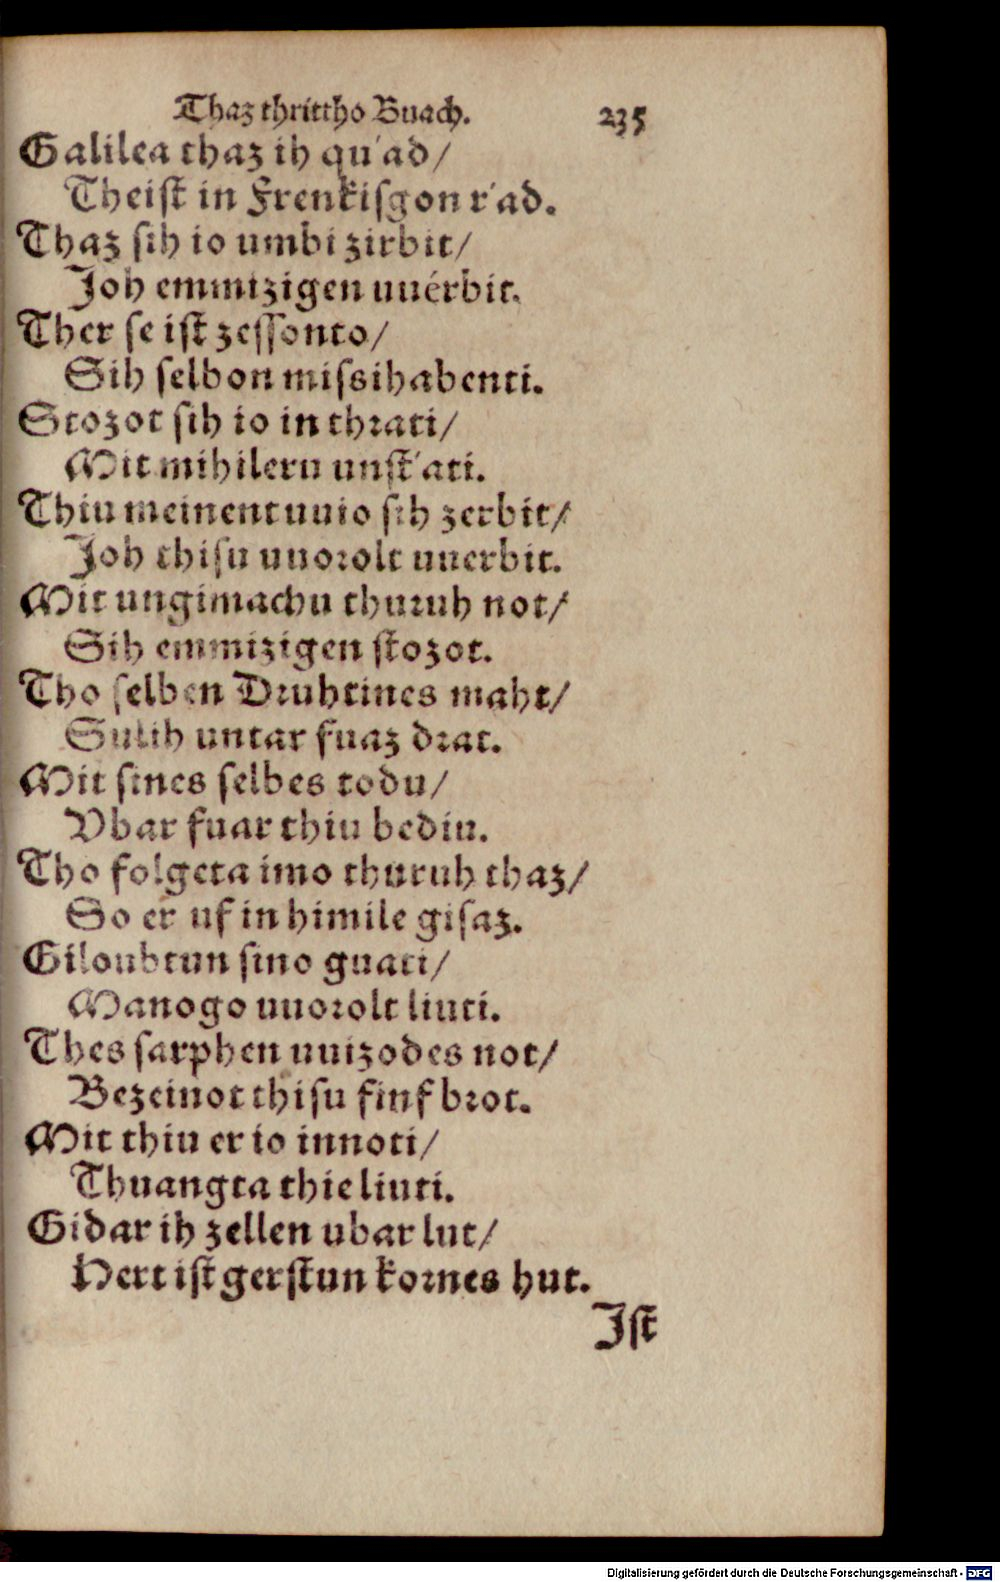 Thaz thrittho Buach. 235
Galilea thaz ih qu'ad/
Theist in Frenkiſgon r'ad.
Thaz ſih io umbi zirbit/
Joh emmizigen uuérbit.
Ther ſe iſt zeſſonto/
Sih ſelbon miſsihabenti.
Stozot ſih io in thrati/
Mit mihileru unſt'ati.
Thiu meinent uuio ſih zerbit/
Joh thiſu uuorolt uuerbit.
Mit ungimachu thuruh not/
Sih emmizigen ſtozot.
Tho ſelben Druhtines maht/
Sulih untar fuaz drat.
Mit ſines ſelbes todu/
Vbar fuar thiu bediu.
Tho folgeta imo thuruh thaz/
So er uf in himile giſaz.
Giloubtun ſino guati/
Manogo uuorolt liuti.
Thes ſarphen uuizodes not/
Bezeinot thiſu finf brot.
Mit thiu er io innoti/
Thuangta thie liuti.
Gidar ih zellen ubar lut/
Hert iſt gerſtun kornes hut.
Jſt
Digitalisierung gefördert durch die Deutsche Forschungsgemeinschaft - DFG